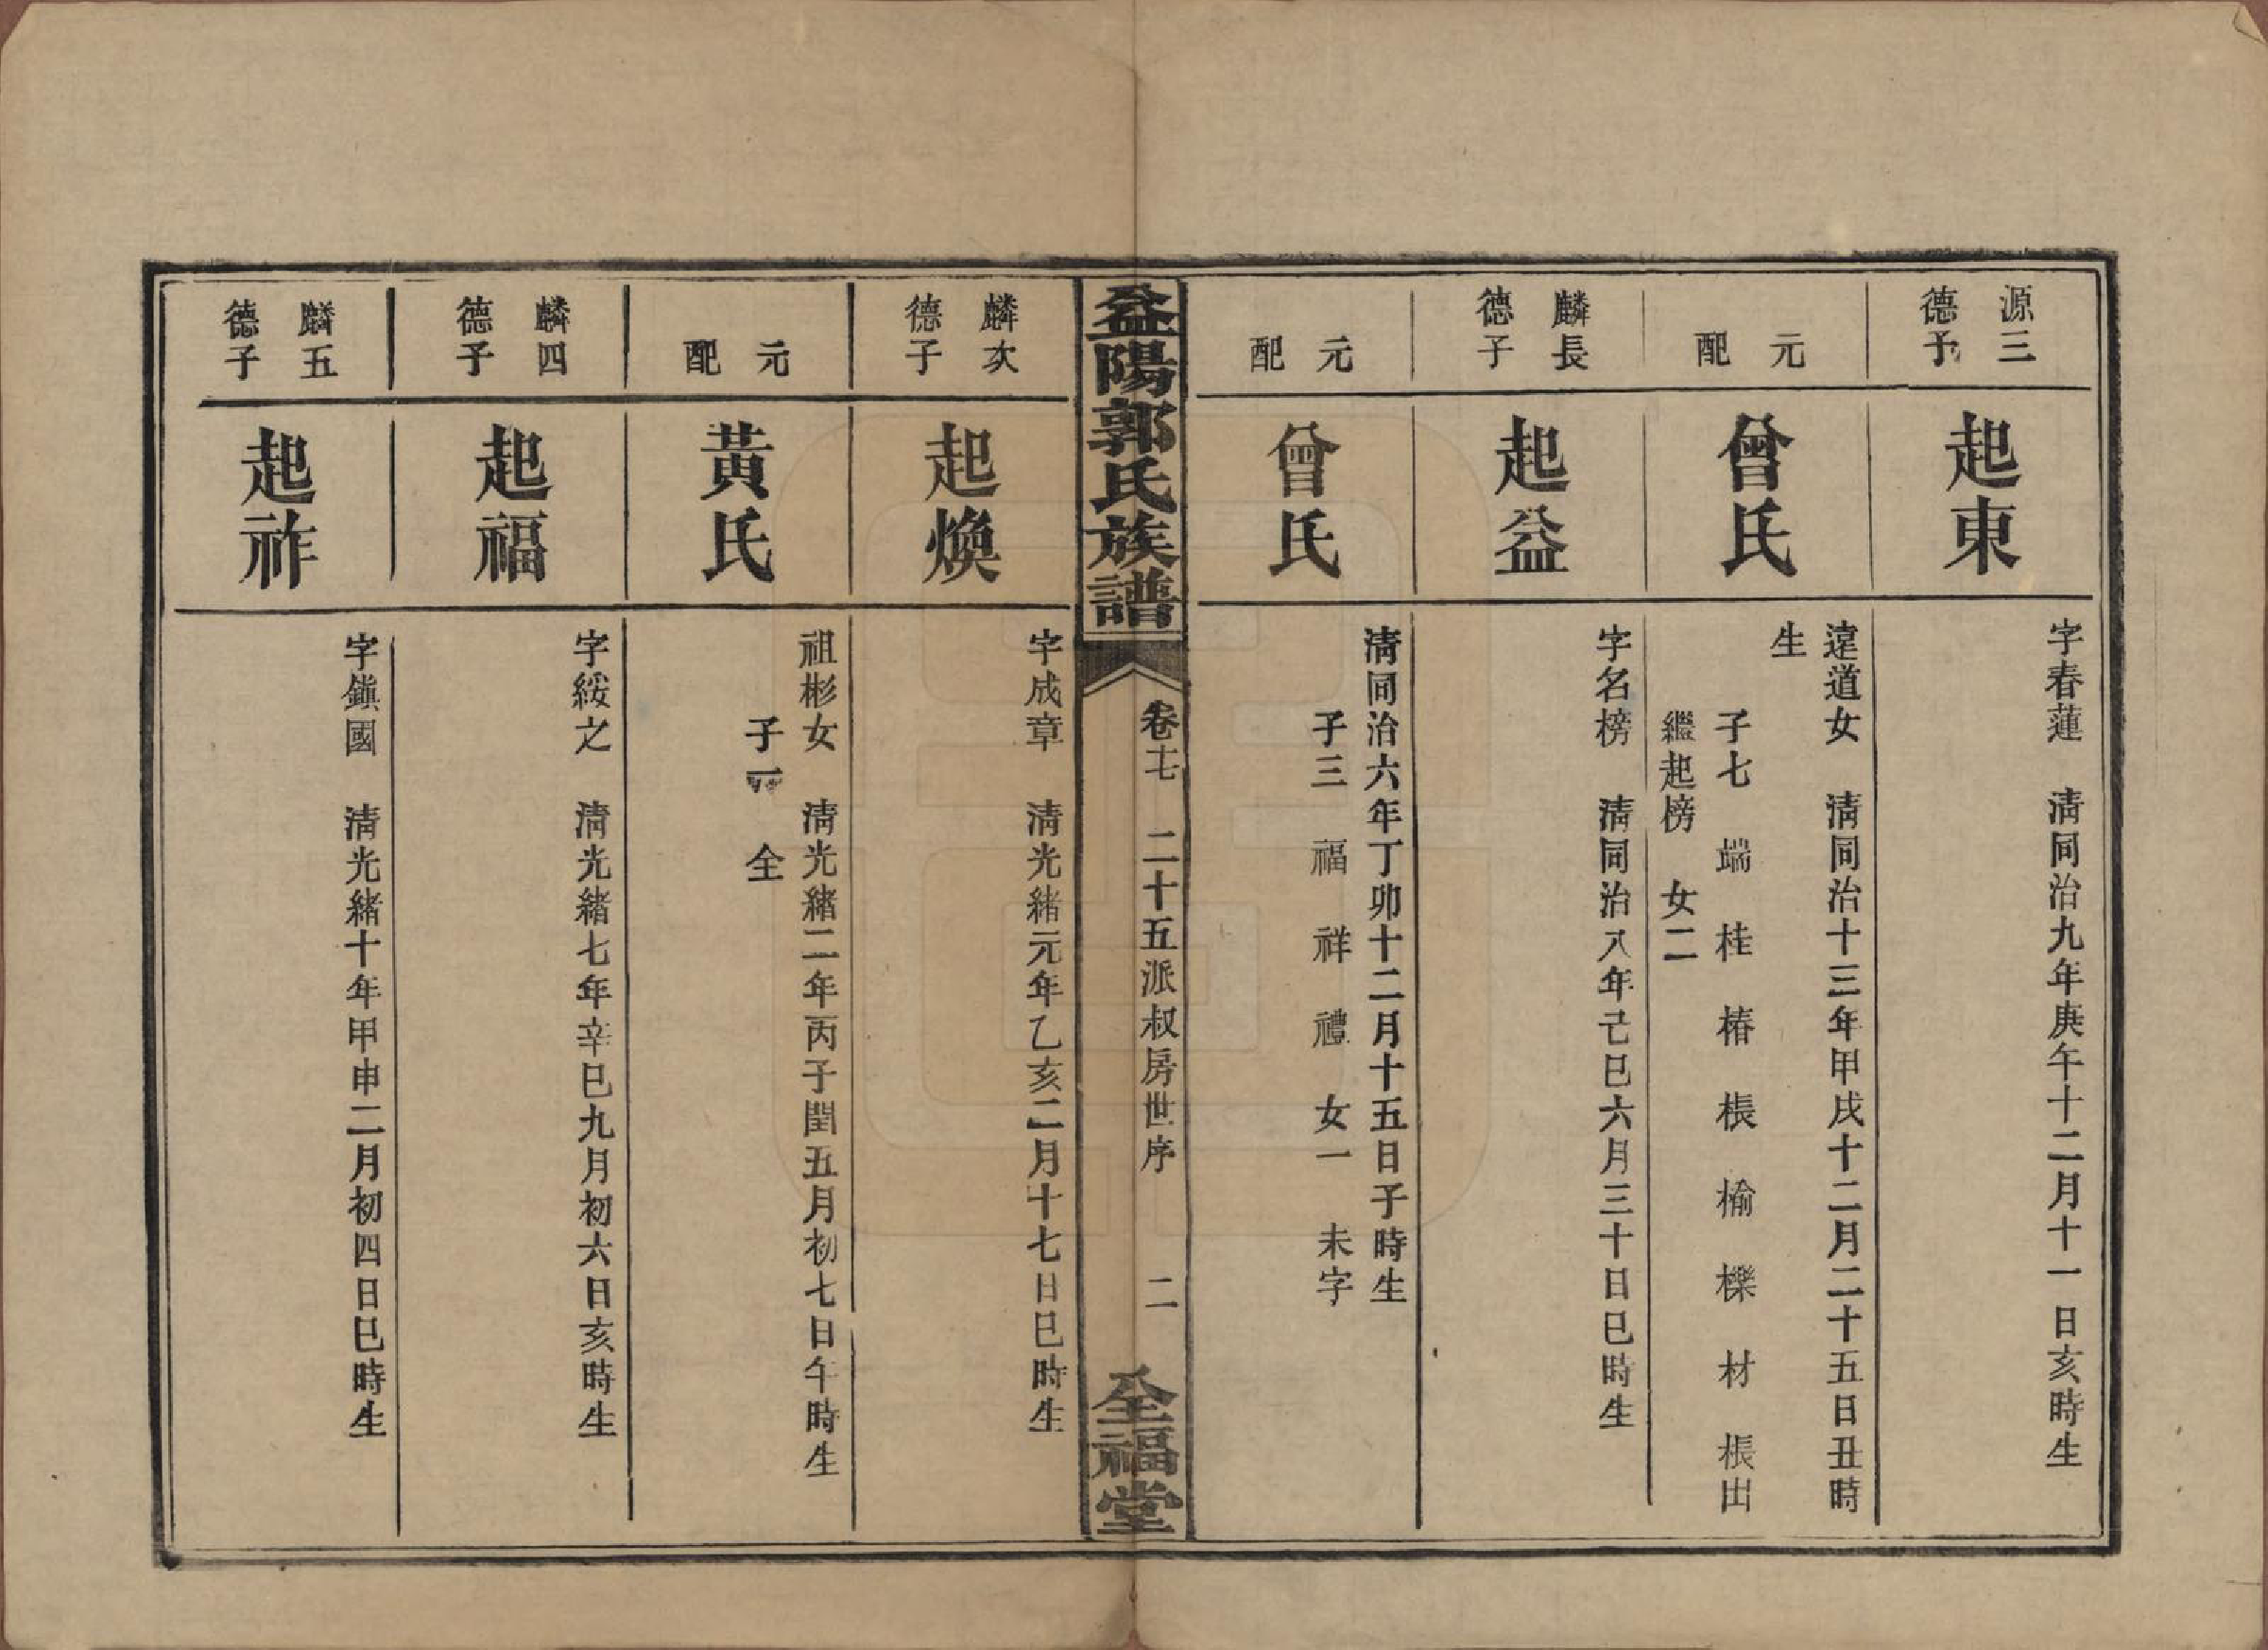 源三
德子
起東
字春蓮　淸同治九年庚午十二月十一日亥時生
元
配
曾氏
遠道女　淸同治十三年甲戌十二月二十五日丑時
生
子七　端　桂　椿　棖　榆　櫟　材　棖出
繼起榜　女二
麟長
德子
起益
字名榜　淸同治八年己巳六月三十日巳時生
元
配
曾氏
淸同治六年丁卯十二月十五日子時生
子三　福　祥　禮　女一　未字
益陽郭氏族譜
卷十七　二十五派叔房世序　二
全福堂
麟次
德子
起煥
字成章　淸光緒元年乙亥二月十七日巳時生
元
配
黃氏
祖彬女　淸光緒二年丙子閏五月初七日午時生
子一　全
麟四
德子
起福
字綏之　淸光緒七年辛巳九月初六日亥時生
麟五
德子
起祚
字鎭國　淸光緒十年甲申二月初四日巳時生